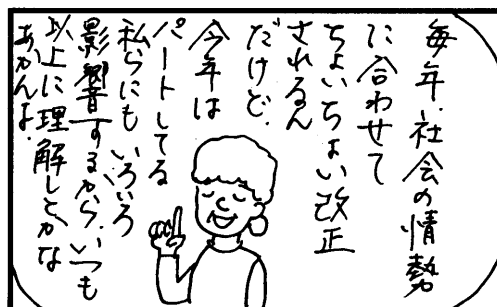 毎年、社会の情勢
に合わせて
ちょいちょい改正
されるん
だけど、
今年は
パートしてる
私らにも いろいろ
影響するから、いつも
以上に理解しとかな
あかんよ。